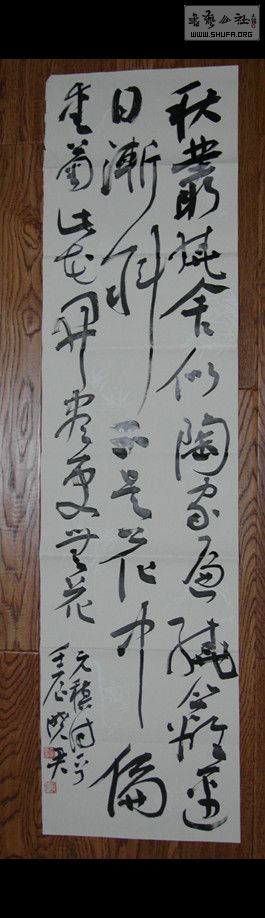 書藝公社
WWW.SHUFA.ORG
秋叢繞舍似陶家遍繞籬邊
日漸斜不是花中偏
愛菊此花開盡更無花
元稹詩
壬辰